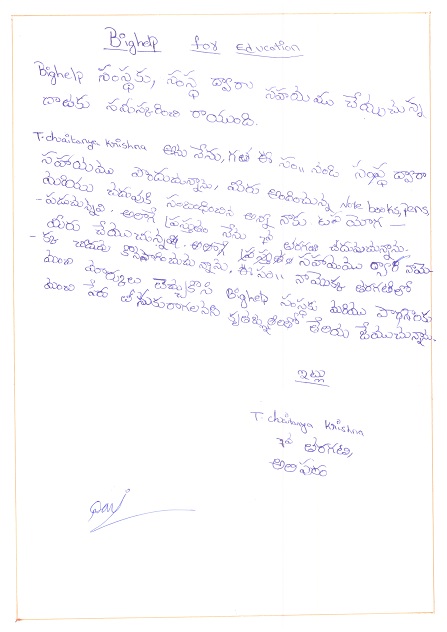 Bighelp for Education
Bighelp సంస్థకు, సంస్థ ద్వారా సహాయము చేస్తున్న
దాతకు నమస్కరించి రాయునది.
T. chaitanya Krishna అను నేను, గత ఈ సం॥ నుండి సంస్థ ద్వారా
సహాయము పొందుచున్నాను, మీరు అందించున్న Note books, pens
మరియు చదువుకి సంబంధించిన అన్ని నాకు ఉప యోగ -
- పడుచున్నవి. అలాగే ప్రస్తుతం నేను 7వ తరగతి చదువుచున్నాను.
మీరు చేయుచున్న సహాయము ద్వారా నాయొ-
- క్క చదువు కొనసాగించుచున్నాను. ఈ సం॥ నాయొక్క తరగతిలో
మంచి మార్కులు తెచ్చుకొని Bighelp సంస్థకు మరియు
మంచి పేరు తీసుకురాగలనని కృతజ్ఞతలతో తెలియ జేయుచున్నాను.
ఇట్లు
T chaitanya Krishna
7వ తరగతి,